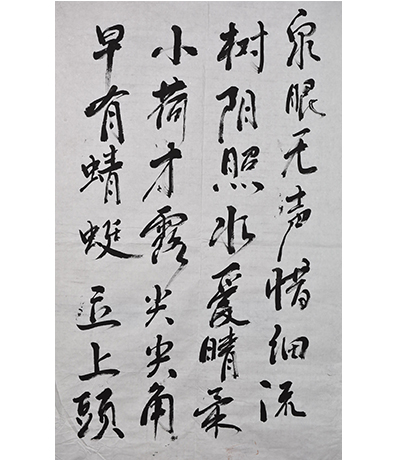 泉眼无声惜细流
树阴照水愛晴柔
小荷才露尖尖角
早有蜻蜓立上頭